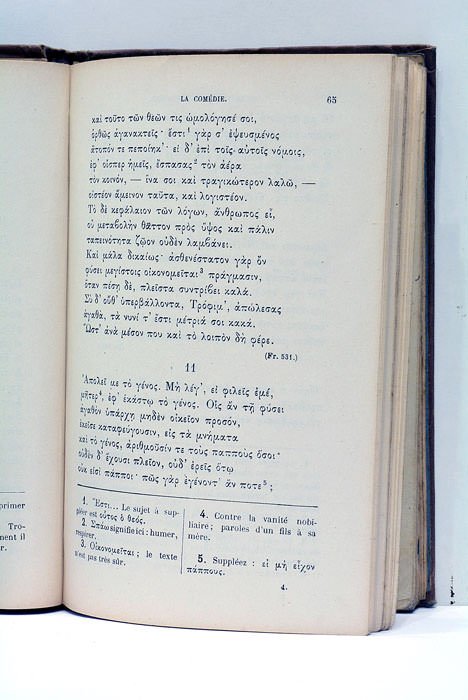 LA COMÉDIE. 65
καὶ τοῦτο τῶν θεῶν τις ὡμολόγησέ σοι,
ὀρθῶς ἀγανακτεῖς · ἔστι¹ γάρ σ' ἐψευσμένος
ἄτοπόν τε πεποίηκ' · εἰ δ' ἐπὶ τοῖς αὐτοῖς νόμοις,
ἐφ' οἷσπερ ἡμεῖς, ἔσπασας² τὸν ἀέρα
τὸν κοινόν, — ἵνα σοι καὶ τραγικώτερον λαλῶ, —
οἰστέον ἄμεινον ταῦτα, καὶ λογιστέον.
Τὸ δὲ κεφάλαιον τῶν λόγων, ἄνθρωπος εἶ,
οὗ μεταβολὴν θᾶττον πρὸς ὕψος καὶ πάλιν
ταπεινότητα ζῷον οὐδὲν λαμβάνει.
Καὶ μάλα δικαίως · ἀσθενέστατον γὰρ ὂν
φύσει μεγίστοις οἰκονομεῖται³ πράγμασιν,
ὅταν πέσῃ δὲ, πλεῖστα συντρίβει καλά.
Σὺ δ' οὔθ' ὑπερβάλλοντα, Τρόφιμ', ἀπώλεσας
ἀγαθὰ, τὰ νυνί τ' ἐστὶ μέτριά σοι κακά.
Ὥστ' ἀνὰ μέσον που καὶ τὸ λοιπὸν δὴ φέρε.
(Fr. 531.)
11
Ἀπολεῖ με τὸ γένος. Μὴ λέγ', εἰ φιλεῖς ἐμέ,
μῆτερ⁴, ἐφ' ἑκάστῳ τὸ γένος. Οἷς ἂν τῇ φύσει
ἀγαθὸν ὑπάρχῃ μηδὲν οἰκεῖον προσόν,
ἐκεῖσε καταφεύγουσιν, εἰς τὰ μνήματα
καὶ τὸ γένος, ἀριθμοῦσίν τε τοὺς πάππους ὅσοι ·
οὐδὲν δ' ἔχουσι πλεῖον, οὐδ' ἐρεῖς ὅτῳ
οὐκ εἰσὶ πάπποι · πῶς γὰρ ἐγένοντ' ἄν ποτε⁵ ;
1. Ἔστι... Le sujet à sup-
pléer est οὗτος ὁ θεός.
2. Σπάω signifie ici : humer,
respirer.
3. Οἰκονομεῖται ; le texte
n'est pas très sûr.
4. Contre la vanité nobi-
liaire ; paroles d'un fils à sa
mère.
5. Suppléez : εἰ μὴ εἶχον
πάππους.
4.
primer
Tro-
ment il
r.